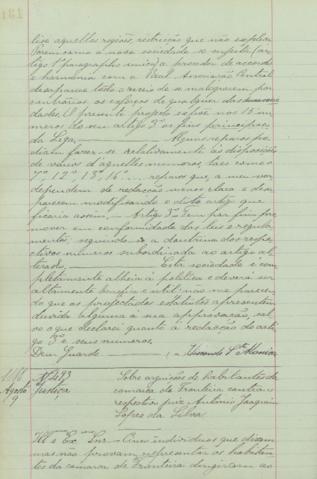 tive aquellas regiões, restricção que não se explica.
Porem como a nova sociedade se sujeita (ar-
tigo 1º paragrapho unico) a proceder de accordo
e harmonia com a Real Associação Central
desapparece todo o receio de se malograrem por
contrarios os esforços de qualquer das
dades. O presente projecto define nos 18 nu-
meros do seu artigo 3º os fins principaes
da Liga. Alguns reparos po-
diam fazer-se relativamente ás disposições
de varios d'aquelles numeros, taes como o
7º, 12º, 13º, 16º... reparos que, a meu ver
dependem de redacção menos clara e desap-
parecem modificando o dito artigo que
ficaria assim. — Artigo 3º Tem por fim pro-
mover em conformidade das leis e regula-
mentos, seguindo a doutrina dos respe-
ctivos numeros subordinada ao artigo al-
terado. — Esta sociedade é com-
pletamente alheia á politica e deverá ser
altamente benefica e util: não me parece
do que os projectados estatutos apresentem
duvida alguma á sua approvação, sal-
vo o que declarei quanto á redacção do arti-
go 3º e seus numeros.
Deus Guarde
Nº 293
Justiça
Agosto
9
Sobre arguições de habitantes da
comarca da Fronteira contra o
respectivo juiz Antonio Joaquim
Lopes da Silva
Illº e Exº Snr — Cinco individuos que dizem
mas não provam representar os habitan-
tes da comarca de Fronteira dirigiram ao